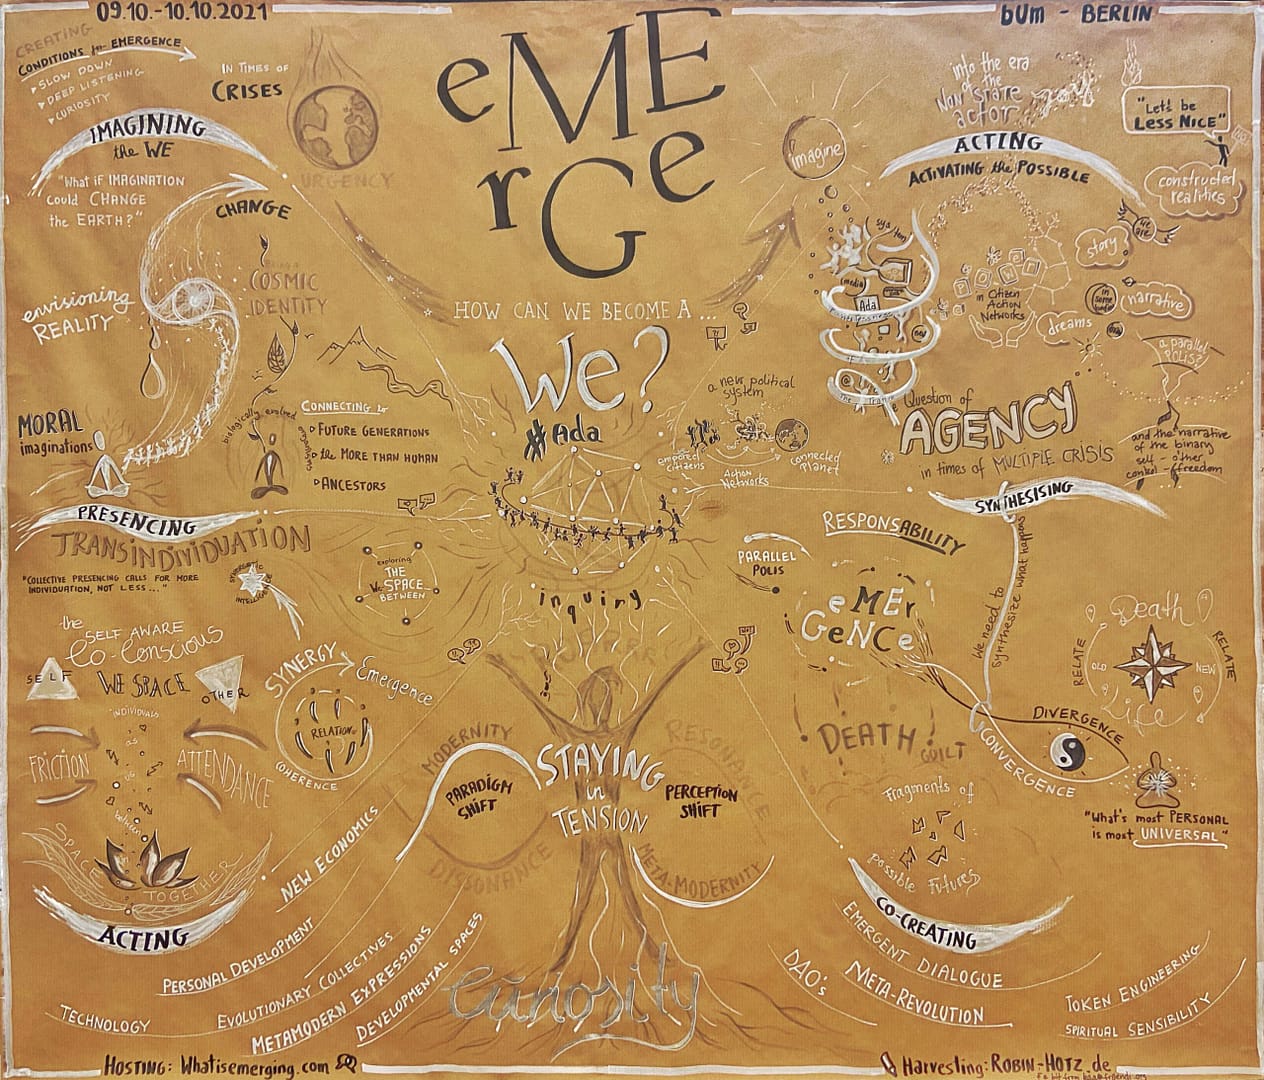 09.10.-10.10.2021
bUm - BERLIN
eMErGe
HOW CAN WE BECOME A ...
We?
#Ada
inquiry
CREATING
CONDITIONS for EMERGENCE
SLOW DOWN
DEEP LISTENING
CURIOSITY
IN TIMES OF
CRISES
URGENCY
IMAGINING
the WE
"What if IMAGINATION
Could CHANGE
the EARTH?"
CHANGE
COSMIC
IDENTITY
envisioning
REALITY
MORAL
imaginations
biologically evolved
CONNECTING to
FUTURE GENERATIONS
the MORE THAN HUMAN
ANCESTORS
PRESENCING
TRANSINDIVIDUATION
"COLLECTIVE PRESENCING CALLS FOR MORE
INDIVIDUATION, NOT LESS..."
exploring
THE
We SPACE
BETWEEN
the
SELF AWARE
Co-Conscious
WE SPACE
SELF
OTHER
INDIVIDUALS
as
us
between
FRICTION
ATTENDANCE
SPACE
TOGETHER
SYNERGY
Emergence
RELATION
COHERENCE
ACTING
NEW ECONOMICS
PERSONAL DEVELOPMENT
TECHNOLOGY
EVOLUTIONARY COLLECTIVES
METAMODERN EXPRESSIONS
DEVELOPMENTAL SPACES
MODERNITY
PARADIGM
SHIFT
DISSONANCE
STAYING
in
TENSION
RESONANCE
PERCEPTION
SHIFT
META-MODERNITY
curiosity
imagine
system
media
Ada
into the era
of the
Non state
actor
"Let's be
LESS NICE"
ACTING
ACTIVATING the POSSIBLE
constructed
realities
we
are
story
narrative
dreams
in Citizen
Action
Networks
a parallel
POLIS?
and the narrative
of the binary
self - other
control - freedom
Question of
AGENCY
in times of MULTIPLE CRISIS
a new political
system
empowered
citizens
Action
Networks
connected
Planet
SYNTHESISING
We need to
synthesize what happens
RESPONSABILITY
PARALLEL
POLIS
eMErGeNCe
DEATH
GUILT
Fragments of
possible Futures
DIVERGENCE
CONVERGENCE
Death
Life
RELATE
RELATE
OLD
NEW
"What's most PERSONAL
is most UNIVERSAL"
CO-CREATING
EMERGENT DIALOGUE
META-REVOLUTION
DAO's
TOKEN ENGINEERING
SPIRITUAL SENSIBILITY
HOSTING: Whatisemerging.com
Harvesting: ROBIN-HOTZ.de